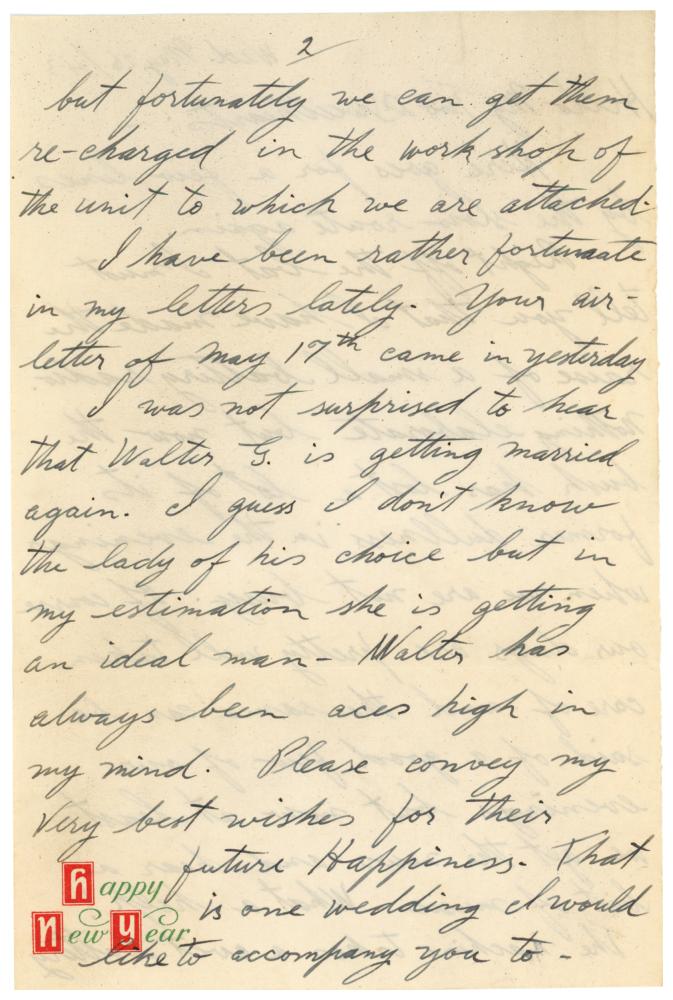 2
but fortunately we can get them
re-charged in the work shop of
the unit to which we are attached.
I have been rather fortunate
in my letters lately. Your air-
letter of May 17th came in yesterday
I was not surprised to hear
that Walter G. is getting married
again. I guess I don't know
the lady of his choice but in
my estimation she is getting
an ideal man - Walter has
always been aces high in
my mind. Please convey my
very best wishes for their
future Happiness. That
is one wedding I would
like to accompany you to -
Happy
New Year